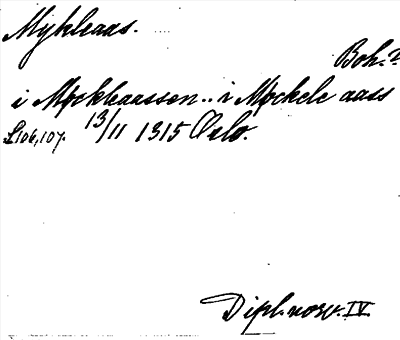 Mykleaas.
Boh.?
i Myckleaassen .. i Myckele aass
S. 106, 107. 13/11 1315 Oslo.
Dipl. norv. IV.